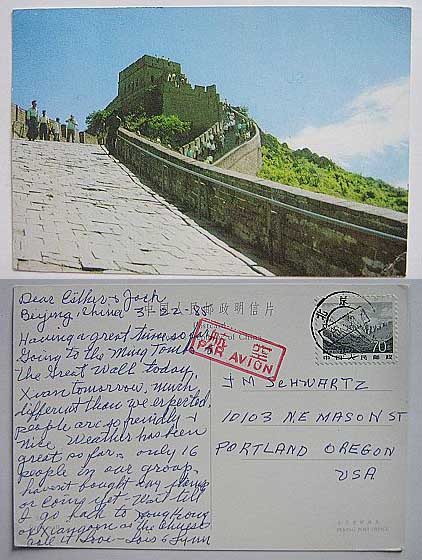 Dear Esther & Jack
Beijing, China 3-22-85
中国人民邮政明信片
Having a great time so far
Going to the Ming Tombs
the Great Wall today,
Xian tomorrow. Much
different than we expected
people are so friendly &
nice. Weather has been
great so far - only 16
people in our group.
haven't bought any stamps
or coins yet - Wait till
I go back to Hong Kong
or Xiangon as the Chinese
call it Love - Lois &
航空
PAR AVION
北京
70分
中国人民邮政
J M SCHWARTZ
10103 N.E MASON ST
PORTLAND OREGON
USA